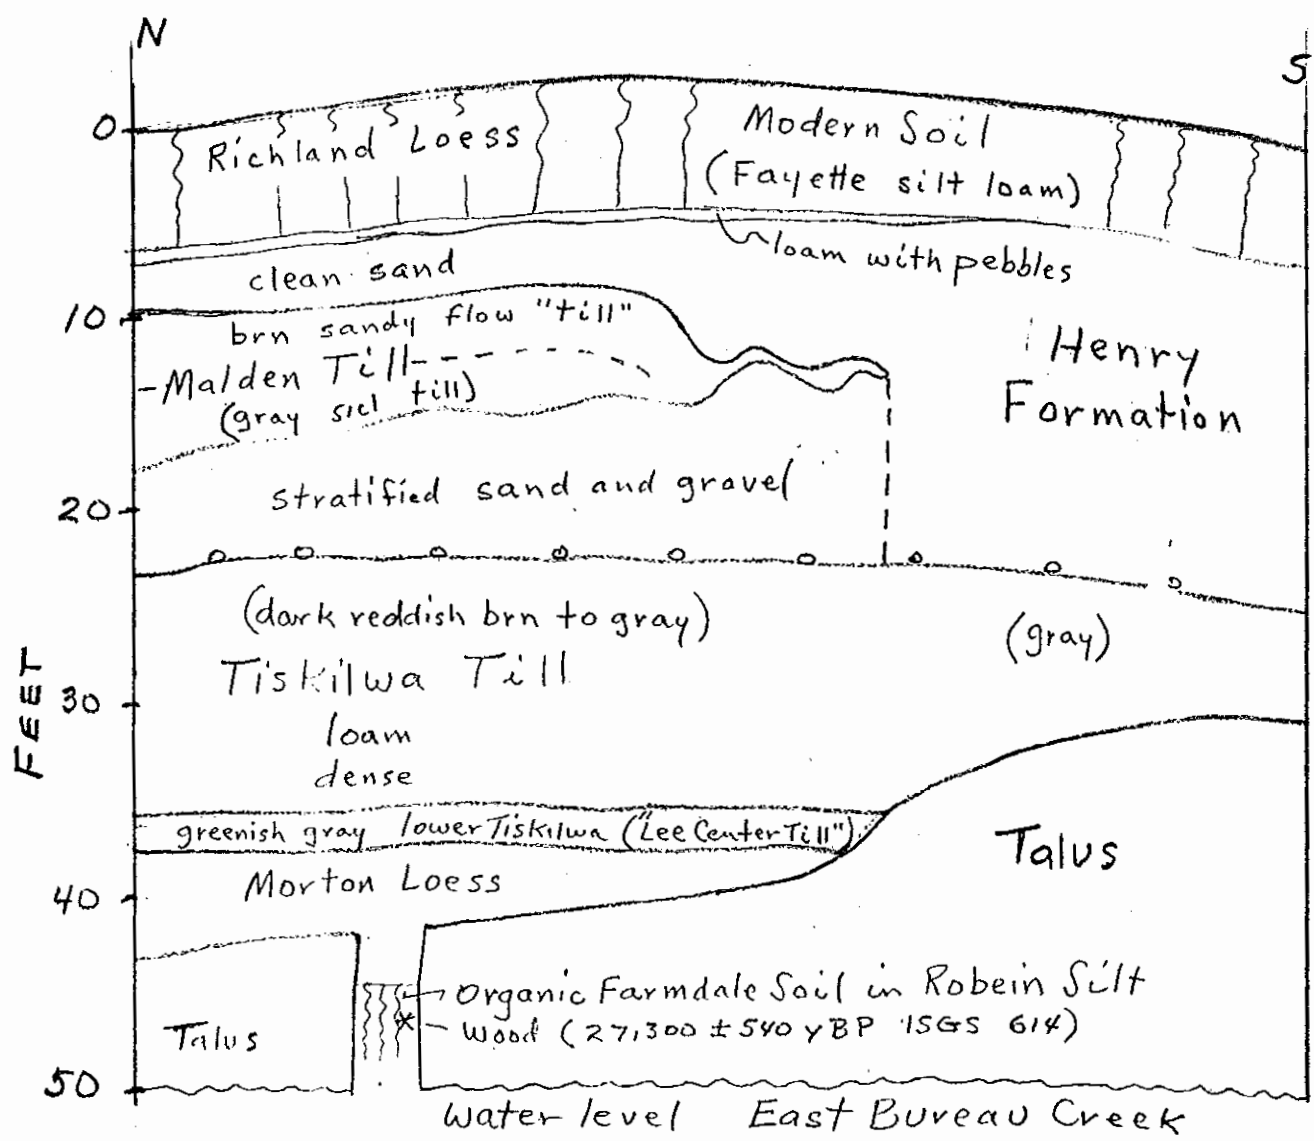 N
S
0
Richland Loess
Modern Soil
(Fayette silt loam)
loam with pebbles
clean sand
10
brn sandy flow "till"
Malden Till
(gray sicl till)
Henry
Formation
stratified sand and gravel
20
(dark reddish brn to gray)
(gray)
Tiskilwa Till
30
loam
dense
FEET
greenish gray lower Tiskilwa ("Lee Center Till")
Talus
Morton Loess
40
Organic Farmdale Soil in Robein Silt
Wood (27,300 ± 540 yBP ISGS 614)
Talus
50
Water level East Bureau Creek